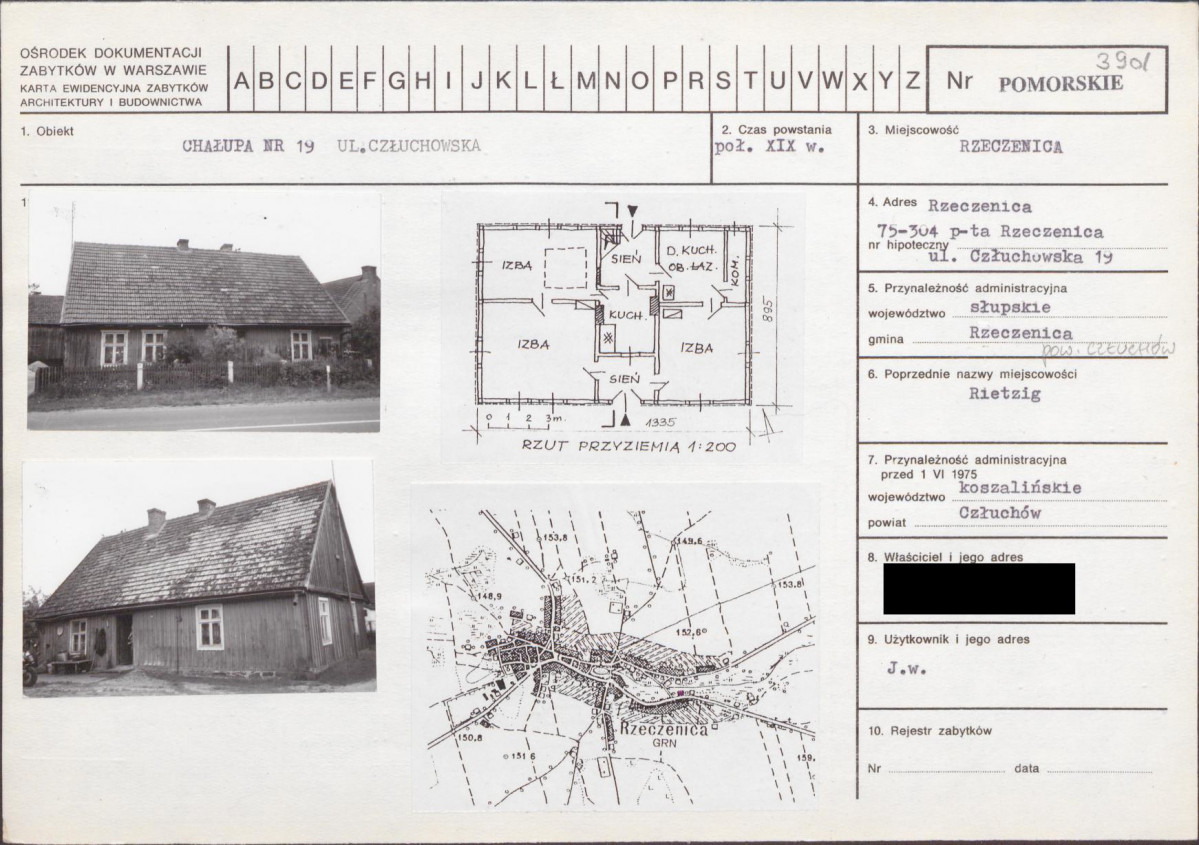 OŚRODEK DOKUMENTACJI
ZABYTKÓW W WARSZAWIE
KARTA EWIDENCYJNA ZABYTKÓW
ARCHITEKTURY I BUDOWNICTWA
A B C D E F G H I J K L Ł M N O P R S T U V W X Y Z
Nr POMORSKIE
3901
1. Obiekt
CHAŁUPA NR 19 UL.CZŁUCHOWSKA
2. Czas powstania
poł. XIX w.
3. Miejscowość
RZECZENICA
1
4. Adres Rzeczenica
75-304 p-ta Rzeczenica
nr hipoteczny
ul. Człuchowska 19
5. Przynależność administracyjna
województwo słupskie
gmina Rzeczenica
pow. CZŁUCHÓW
6. Poprzednie nazwy miejscowości
Rietzig
7. Przynależność administracyjna
przed 1 VI 1975
województwo koszalińskie
powiat Człuchów
8. Właściciel i jego adres
9. Użytkownik i jego adres
J.w.
10. Rejestr zabytków
Nr data
IZBA
SIEŃ
D. KUCH.
OB. ŁAZ.
KOM.
KUCH.
IZBA
IZBA
SIEŃ
895
0 1 2 3m.
1335
RZUT PRZYZIEMIA 1:200
153,8
149,6
151,2
148,9
153,8
152,6
150,8
151 6
159,
Rzeczenica
GRN